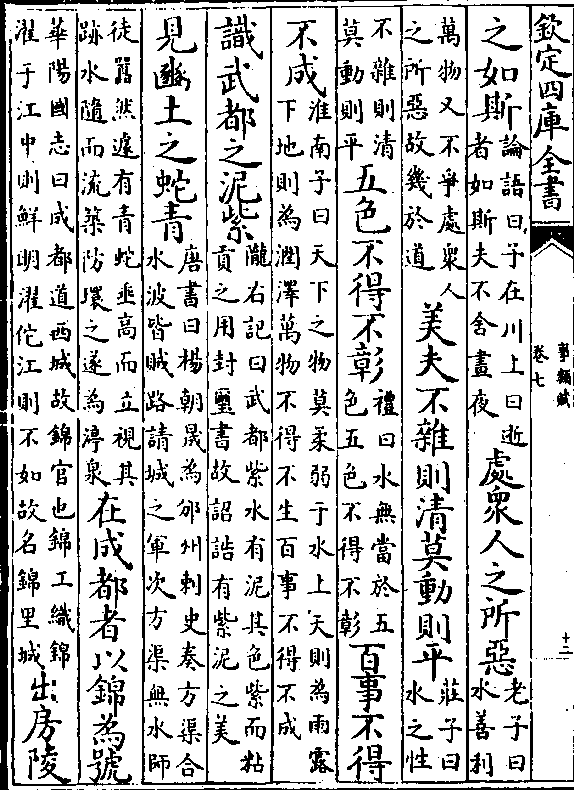 欽定四庫全書
事類賦
卷七
十二
之如斯論語曰子在川上曰逝
者如斯夫不舍晝夜處衆人之所惡老子曰
水善利
萬物又不爭處衆人
之所惡故幾於道美夫不雜則清莫動則平莊子曰
水之性
不雜則清
莫動則平五色不得不彰禮曰水無當於五
色五色不得不彰百事不得
不成淮南子曰天下之物莫柔弱于水上天則為雨露
下地則為潤澤萬物不得不生百事不得不成
識武都之泥紫隴右記曰武都紫水有泥其色紫而粘
貢之用封璽書故詔誥有紫泥之美
見豳土之蛇青唐書曰楊朝晟為邠州刺史奏方渠合
水波皆賊路請城之軍次方渠無水師
徒囂然遽有青蛇垂高而立視其
跡水隨而流築防環之遂為渟泉在成都者以錦為號
華陽國志曰成都道西城故錦官也錦工織錦
濯于江中則鮮明濯佗江則不如故名錦里城出房陵